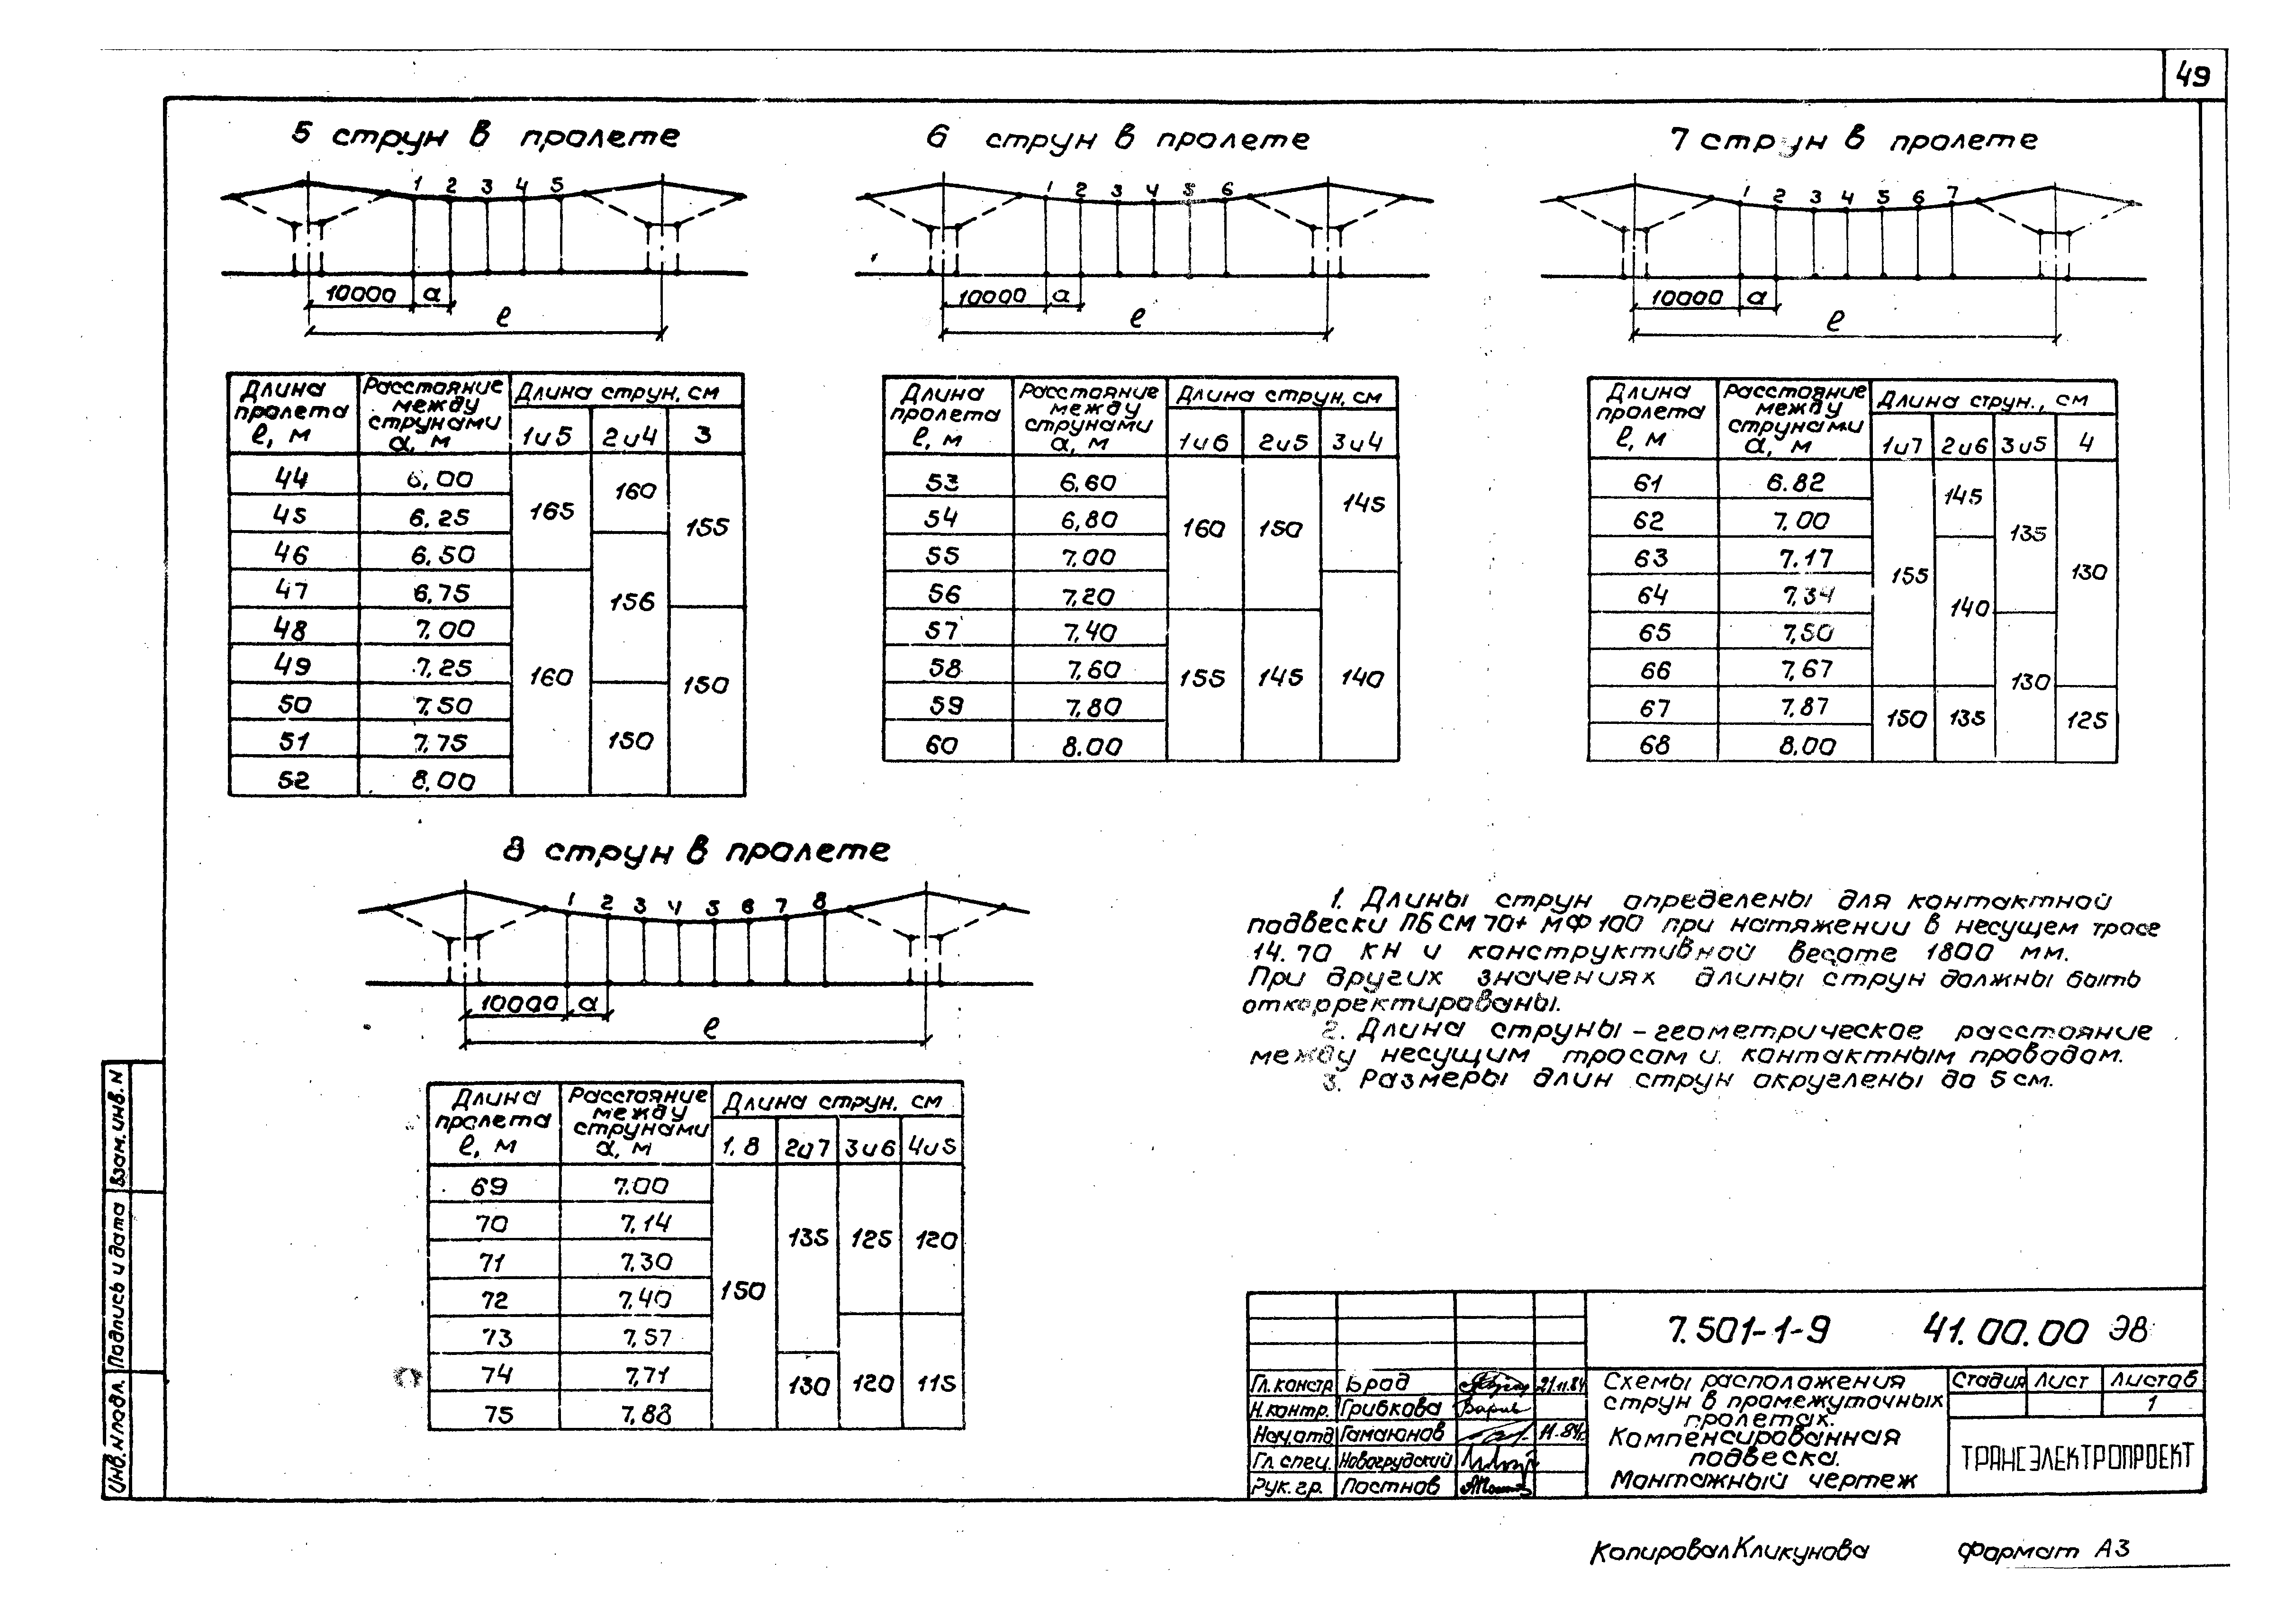 49
5 струн в пролете
1 2 3 4 5
10000 а
ℓ
Длина пролета ℓ, м
Расстояние между струнами а, м
Длина струн, см
1и5 2и4 3
44 6,00
45 6,25
46 6,50
47 6,75
48 7,00
49 7,25
50 7,50
51 7,75
52 8,00
165 160
160 156 150
155 150
6 струн в пролете
1 2 3 4 5 6
10000 а
ℓ
Длина пролета ℓ, м
Расстояние между струнами а, м
Длина струн, см
1и6 2и5 3и4
53 6.60
54 6,80
55 7,00
56 7,20
57 7,40
58 7,60
59 7,80
60 8.00
160 155
150 145
145 140
7 струн в пролете
1 2 3 4 5 6 7
10000 а
ℓ
Длина пролета ℓ, м
Расстояние между струнами а, м
Длина струн., см
1и7 2и6 3и5 4
61 6.82
62 7.00
63 7.17
64 7,34
65 7,50
66 7,67
67 7,87
68 8,00
155 150
145 140 135
135 130
130 125
8 струн в пролете
1 2 3 4 5 6 7 8
10000 а
ℓ
Длина пролета ℓ, м
Расстояние между струнами а, м
Длина струн, см
1,8 2и7 3и6 4и5
69 7.00
70 7,14
71 7,30
72 7,40
73 7,57
74 7,71
75 7,88
150
135 130
125 120
120 115
1. Длины струн определены для контактной
подвески ПБСМ 70+ МФ 100 при натяжении в несущем тросе
14.70 кН и конструктивной высоте 1800 мм.
При других значениях длины струн должны быть
откорректированы.
2. Длина струны – геометрическое расстояние
между несущим тросом и контактным проводом.
3. Размеры длин струн округлены до 5 см.
Взам. инв. N
Подпись и дата
Инв. N подл.
7.501-1-9 41.00.00 Э8
Гл. констр. Брод 21.11.84
Н. контр. Грибкова
Нач. отд Гамаюнов 11.84г.
Гл. спец. Новогрудский
Рук. гр. Постнов
Схемы расположения
струн в промежуточных
пролетах.
Компенсированная
подвеска.
Монтажный чертеж
Стадия Лист Листов
1
ТРАНСЭЛЕКТРОПРОЕКТ
Копировал Кликунова Формат А3